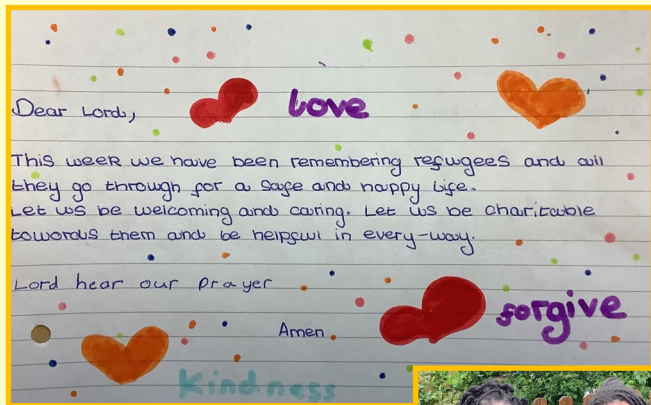 Dear Lord,
love
This week we have been remembering refugees and all
they go through for a safe and happy life.
Let us be welcoming and caring. Let us be charitable
towards them and be helpful in every-way.
Lord hear our prayer
forgive
Amen
Kindness